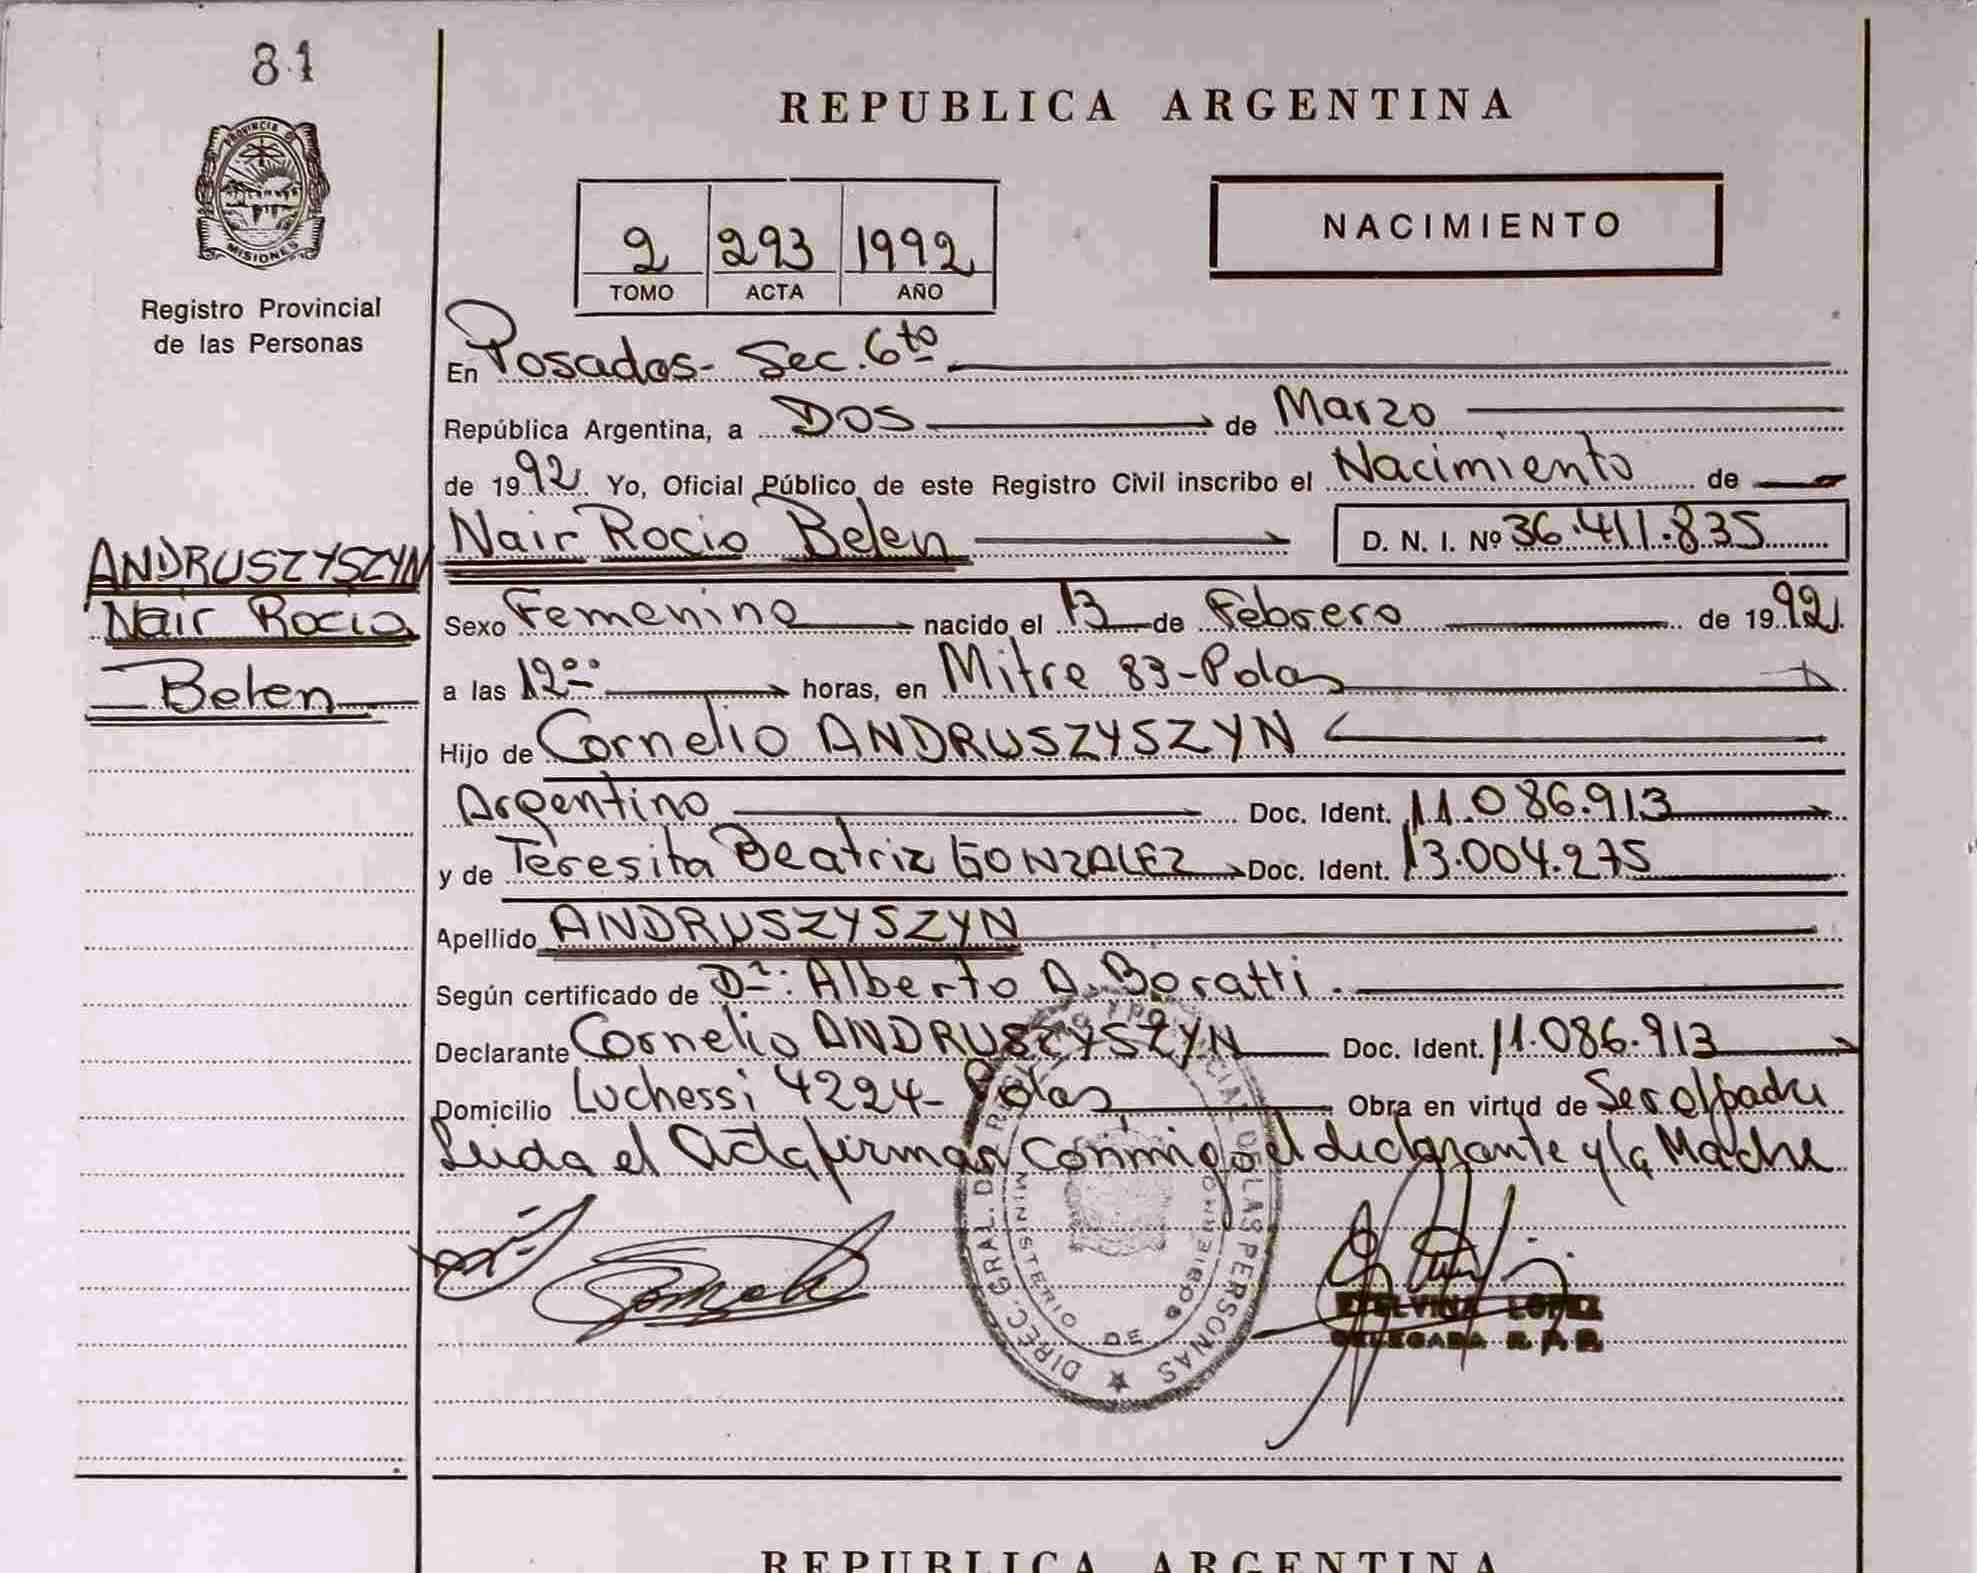 81
PROVINCIA DE
MISIONES
Registro Provincial
de las Personas
ANDRUSZYSZYN
Nair Rocio
Belen
REPUBLICA ARGENTINA
2 293 1992
TOMO ACTA AÑO
NACIMIENTO
En Posadas- Sec. 6to
República Argentina, a Dos de Marzo
de 1992 Yo, Oficial Público de este Registro Civil inscribo el Nacimiento de
Nair Rocio Belen D. N. I. Nº 36.411.835
Sexo Femenino nacido el 13 de Febrero de 1992
a las 12°° horas, en Mitre 83-Pdas
Hijo de Cornelio ANDRUSZYSZYN
Argentino Doc. Ident. 11.086.913
y de Teresita Beatriz GONZALEZ Doc. Ident. 13.004.275
Apellido ANDRUSZYSZYN
Según certificado de Dr: Alberto A. Boratti.
Declarante Cornelio ANDRUSZYSZYN Doc. Ident. 11.086.913
Domicilio Luchessi 4224- Pdas Obra en virtud de Ser el padre
Leida el Acta firman conmigo el declarante y la Madre
DIREC. GRAL. DE PROVINCIAL DE LAS PERSONAS
MINISTERIO DE GOBIERNO
ETELVINA LOPEZ
DELEGADA R.P.P.
REPUBLICA ARGENTINA